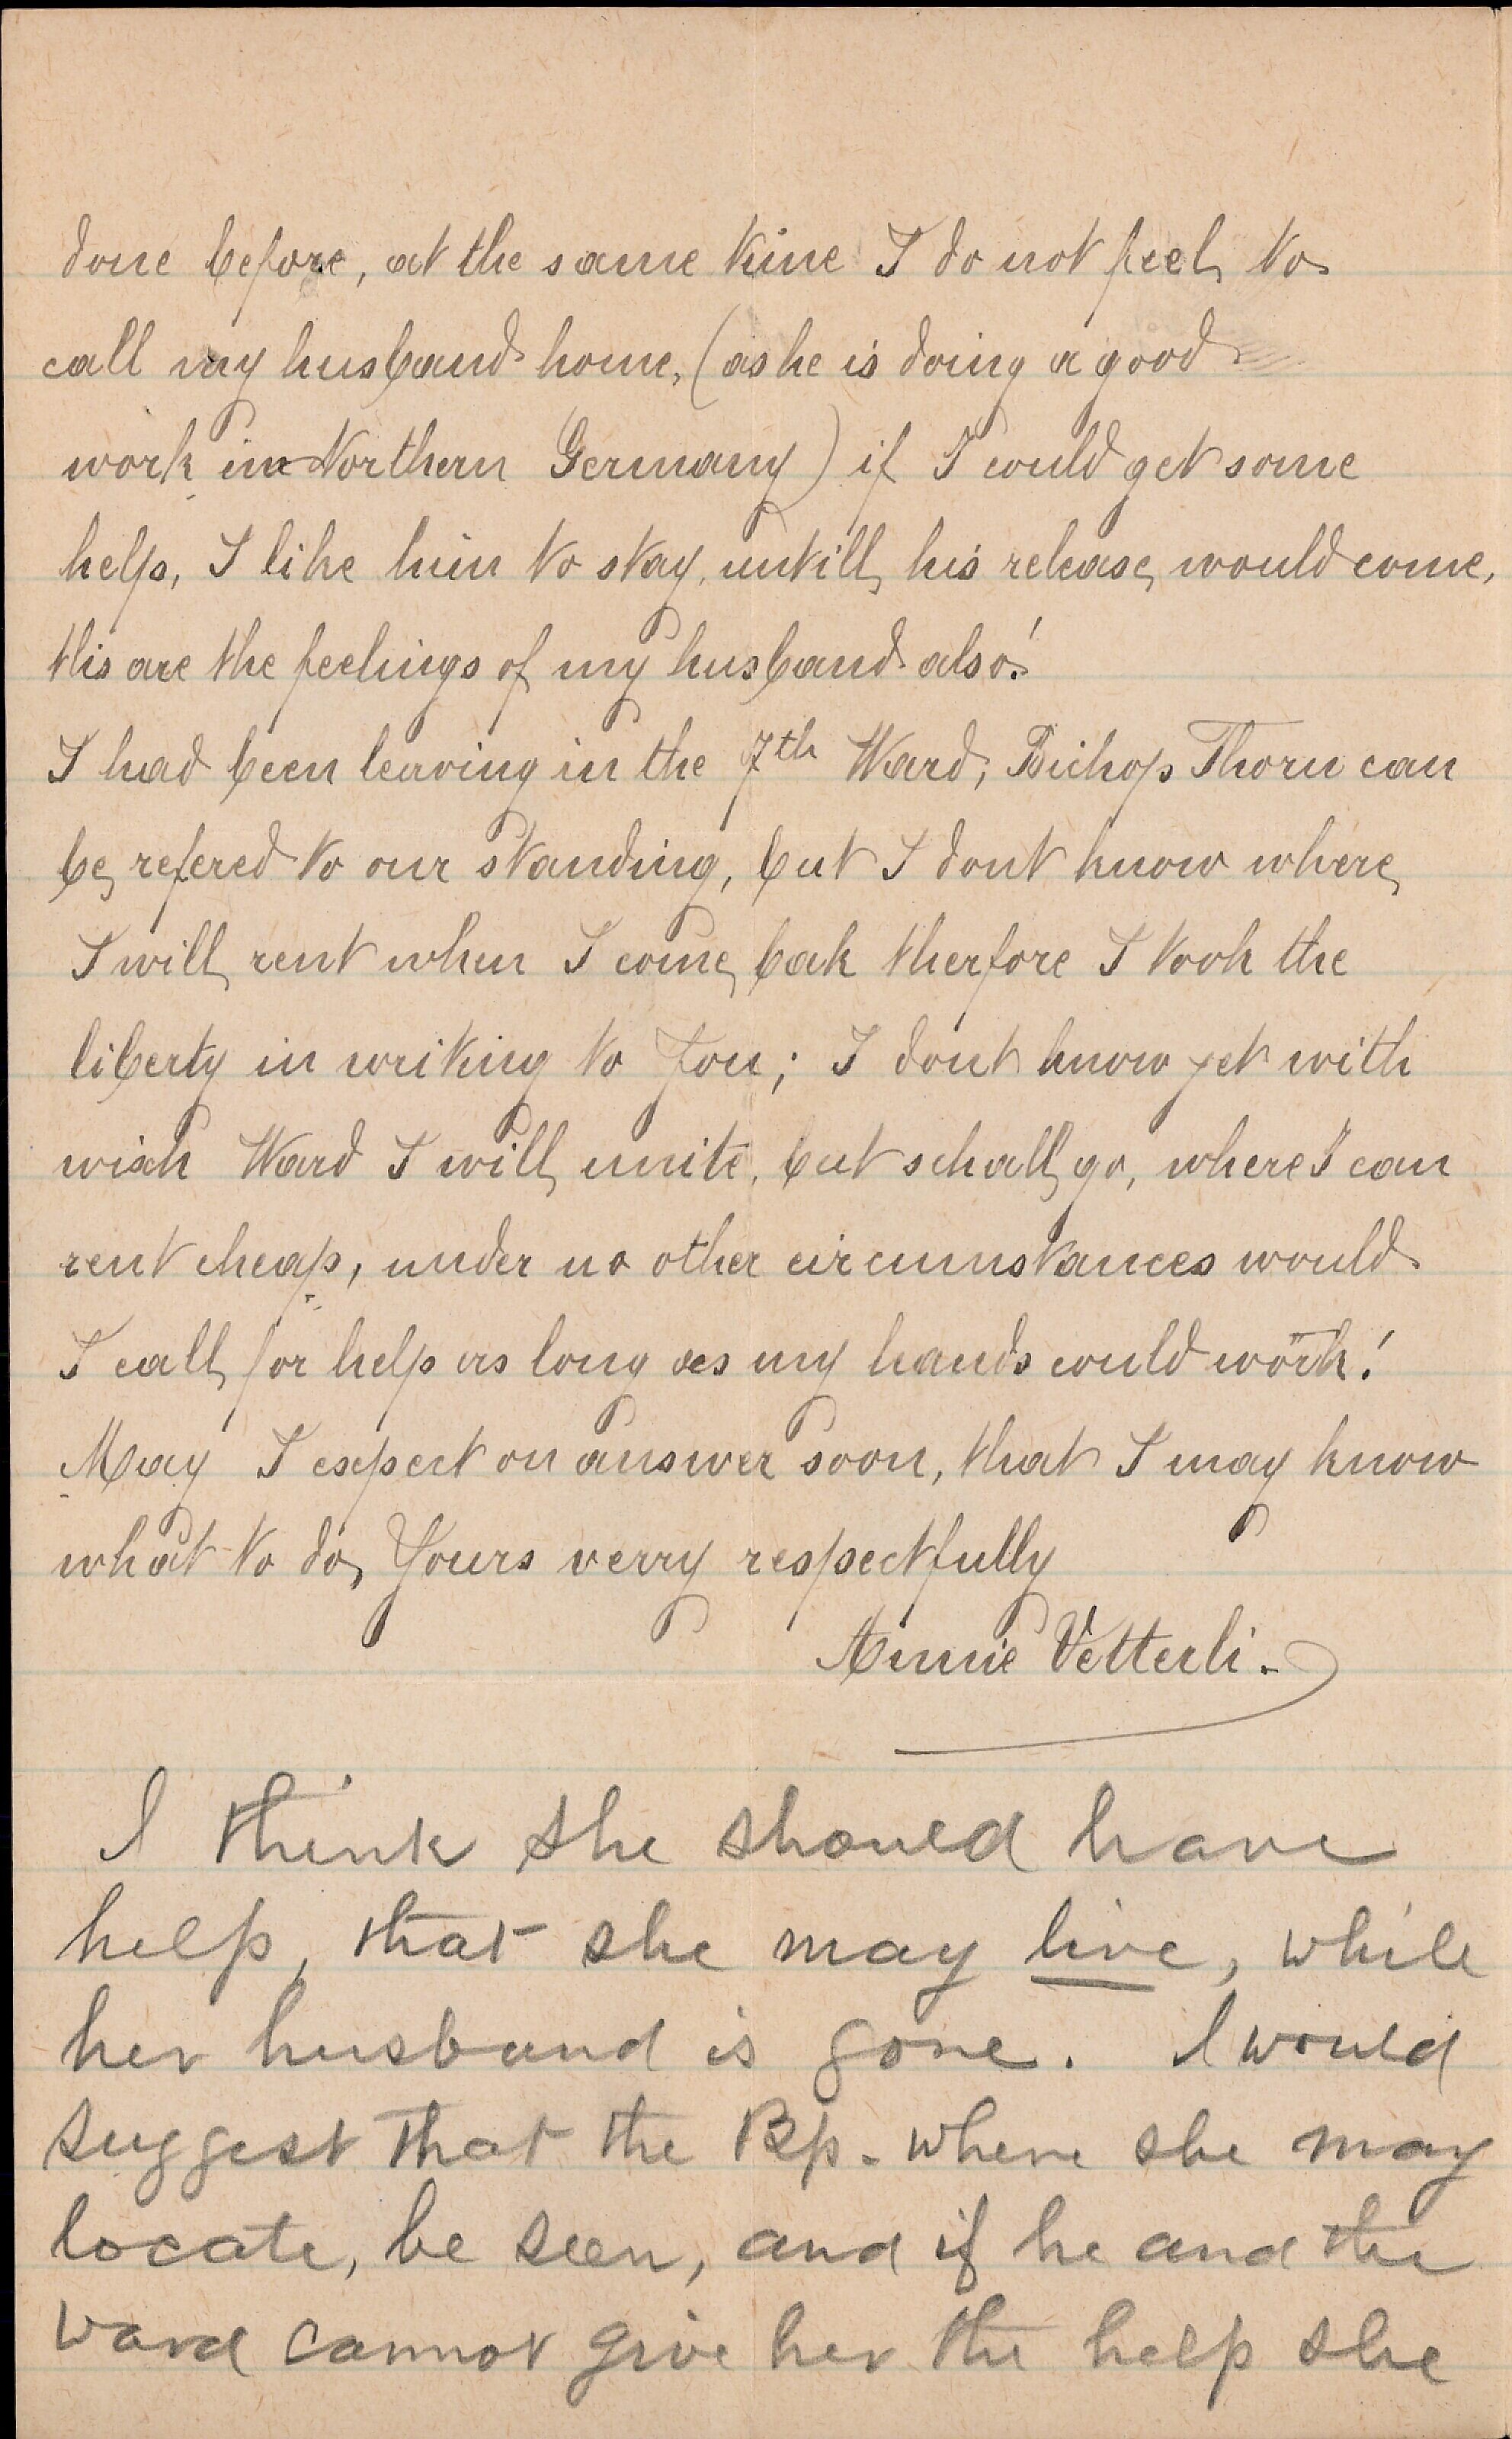 done before, at the same time I do not feel to
call my husband home, (as he is doing a good
work in Northern Germany) if I could get some
help, I like him to stay, untill his release would come,
this are the feelings of my husband also!
I had been leaving in the 7th Ward, Bichop Thorn can
be refered to our standing, but I dont know where
I will rent when I come bak therfore I took the
liberty in writing to You; I dont know yet with
wich Ward I will unite, but schall go, where I can
rent cheap, under no other circumstances would
I call for help as long as my hands could work!
May I expect an answer soon, that I may know
what to do, Yours verry respectfully
Annie Vetterli.
I think she should have
help, that she may live, while
her husband is gone. I would
suggest that the Bp. where she may
locate, be seen, and if he and the
ward cannot give her the help she